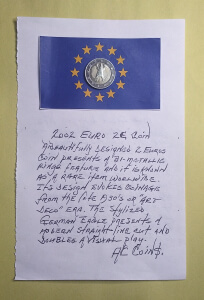 2002 EURO 2€ COIN
A BEAUTIFULLY DESIGNED 2 EUROS
COIN PRESENTS A "BI-METALLIC
RING FEATURE AND IT IS KNOWN
AS "A RARE ITEM WORLDWIDE.
ITS DESIGN EVOKES COINAGE
FROM THE LATE 1930'S OR ART
DECO" ERA. THE STYLIZED
GERMAN EAGLE PRESENTS A
MODERN STRAIGHT-LINE CUT AND
DOUBLES A VISUAL PLAY.
AC COIN$.